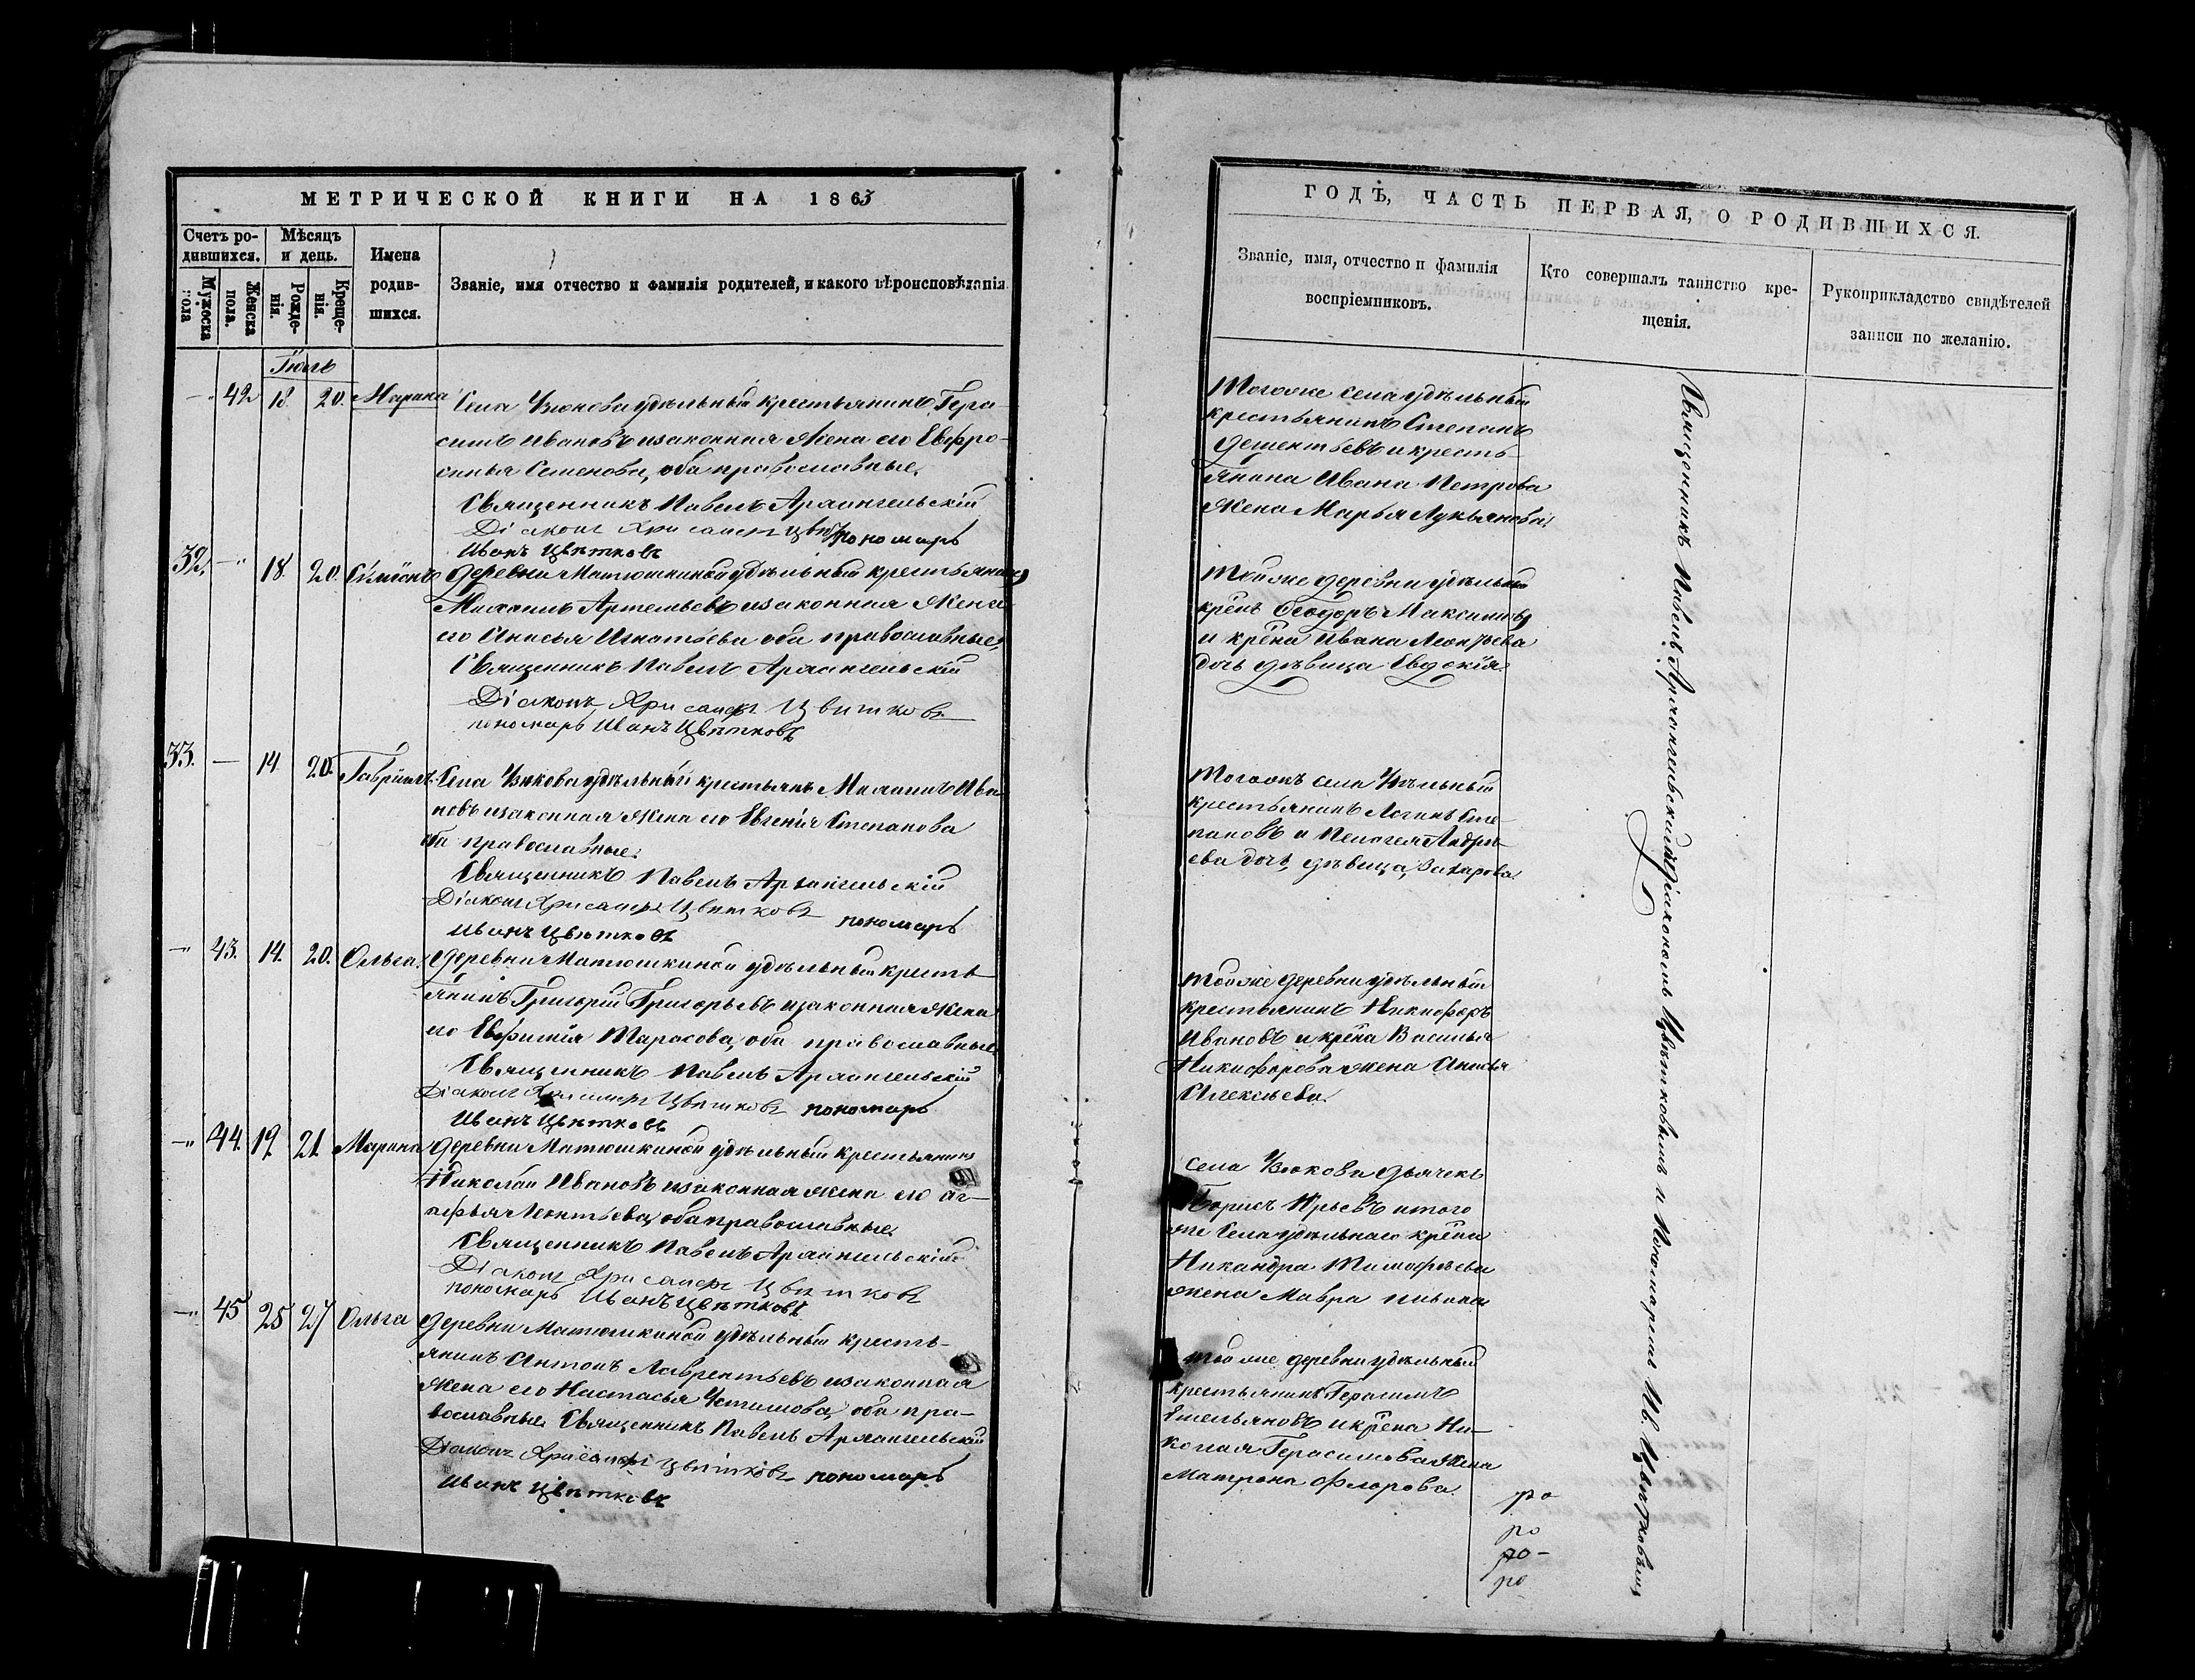 МЕТРИЧЕСКОЙ КНИГИ НА 1865
Счетъ ро-
дившихся.
Мужеска
пола
Женска
пола.
Мѣсяцъ
и день.
Рожде-
нія.
Креще-
нія.
Имена
родив-
шихся.
Званіе, имя отчество и фамилія родителей, и какого вѣроисповѣданія
Іюль
42 18 20. Марина
Села удѣльный крестьянинъ Гера-
симъ Ивановъ изаконная жена его Евфро-
синья Семенова, оба православные.
Священникъ Павелъ Архангельскій
Діаконъ Хрисанфъ пономарь
Иванъ Цвѣтковъ
32. — 18. 20. Сімеонъ
деревни Матюшкиной удѣльный крестьянинъ
Михаилъ Артемьевъ изаконная жена
его Анисья Игнатьева оба православные,
Священникъ Павелъ Архангельскій
Діаконъ Хрисанфъ Цвѣтковъ
пономарь Иванъ Цвѣтковъ
33. — 14 20. Гавріилъ.
Села удѣльный крестьянъ Михаилъ Ива-
новъ изаконная жена его Евгенія Степанова
оба православные.
Священникъ Павелъ Архангельскій
Діаконъ Хрисанфъ Цвѣтковъ пономарь
Иванъ Цвѣтковъ
43. 14. 20. Ольга.
деревни Матюшкиной удѣльный кресть-
янинъ Григорій Григорьевъ изаконная жена
его Евфимія Тарасова, оба православные
Священникъ Павелъ Архангельскій
Діаконъ Хрисанфъ Цвѣтковъ пономарь
Иванъ Цвѣтковъ
44. 19. 21. Марина
деревни Матюшкиной удѣльный крестьянинъ
Николай Ивановъ изаконная жена его Аг-
рефья Леонтьева, оба православные.
Священникъ Павелъ Архангельскій
Діаконъ Хрисанфъ Цвѣтковъ
пономарь Иванъ Цвѣтковъ
45 25 27 Ольга
деревни Матюшкиной удѣльный кресть-
янинъ Антонъ Лаврентьевъ изаконная
жена его Настасья Устимова, оба пра-
вославные. Священникъ Павелъ Архангельскій
Діаконъ Хрисанфъ Цвѣтковъ пономарь
Иванъ Цвѣтковъ
ГОДЪ, ЧАСТЬ ПЕРВАЯ, О РОДИВШИХСЯ.
Званіе, имя, отчество и фамилія
воспріемниковъ.
Кто совершалъ таинство кре-
щенія.
Рукоприкладство свидѣтелей
записи по желанію.
Тогоже села удѣльный
крестьянинъ Степанъ
Дементьевъ и кресть-
янина Ивана Петрова
жена Марья Лукьянова.
Тойже деревни удѣльный
крѣнъ Ѳеодоръ Максимовъ
и крѣна Ивана Леонтьева
дочь дѣвица Евдокія.
Тогожъ села Удѣльный
крестьянинъ Логинъ Сте-
пановъ и Пелагея Андре-
ева дочь, дѣвица, Захарова.
Тойже деревни удѣльный
крестьянинъ Никифоръ
Ивановъ и крѣна Василья
Никифорова жена Анисья
Алексѣева.
Села дьячекъ
Борисъ и того
же Села удѣльнаго крѣна
Никандра Тимофѣева
жена Мавра
Тойже деревни удѣльный
крестьянинъ Герасимъ
Емельяновъ и крѣна Ни-
колая Герасимова жена
Матрона Флорова.
ро
ро
ро-
ро
Священникъ Павелъ Архангельскій съ Діакономъ Цвѣтковымъ и Пономаремъ Ив. Цвѣтковымъ